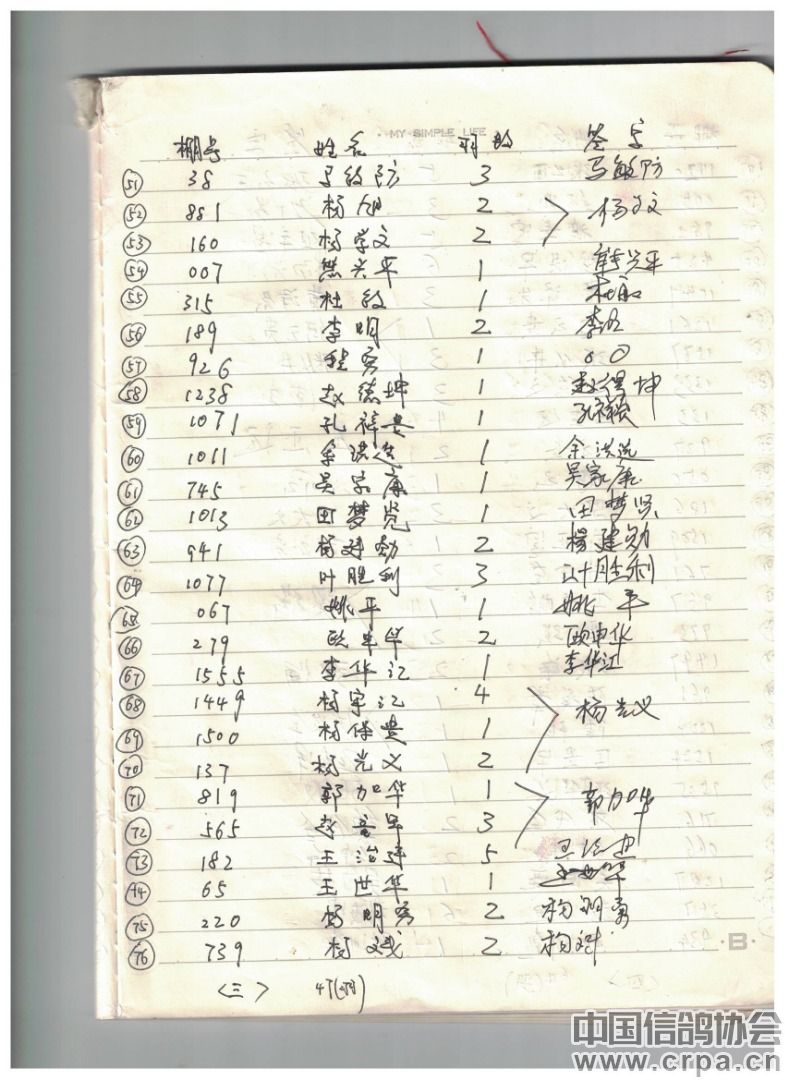 MY SIMPLE LIFE
棚号 姓名 羽数 签字
51 38 马敏防 3 马敏防
52 881 杨旭 2
53 160 杨学文 2 杨学文
54 007 熊兴平 1 熊兴平
55 315 杜敏 1
56 189 李明 2 李明
57 926 程勇 1
58 1238 赵德坤 1 赵德坤
59 1071 孔祥贵 1 孔祥贵
60 1011 余洪 1 余洪
61 745 吴家康 1 吴家康
62 1013 田梦贤 1 田梦贤
63 941 杨建勋 2 楊建勋
64 1077 叶胜利 3 叶胜利
65 067 姚平 1 姚平
66 279 欧申华 2 欧申华
67 1555 李华江 1 李华江
68 1449 杨宇记 4
69 1500 杨保贵 1 杨光义
70 137 杨光义 2
71 819 郭加华 1 郭加华
72 565 赵 3
73 182 王治 5 王治
44 65 王世华 1 王世华
75 220 杨明勇 2 杨明勇
76 739 杨斌 2 杨斌
B
<三> 47(羽)
中国信鸽协会
www.crpa.cn